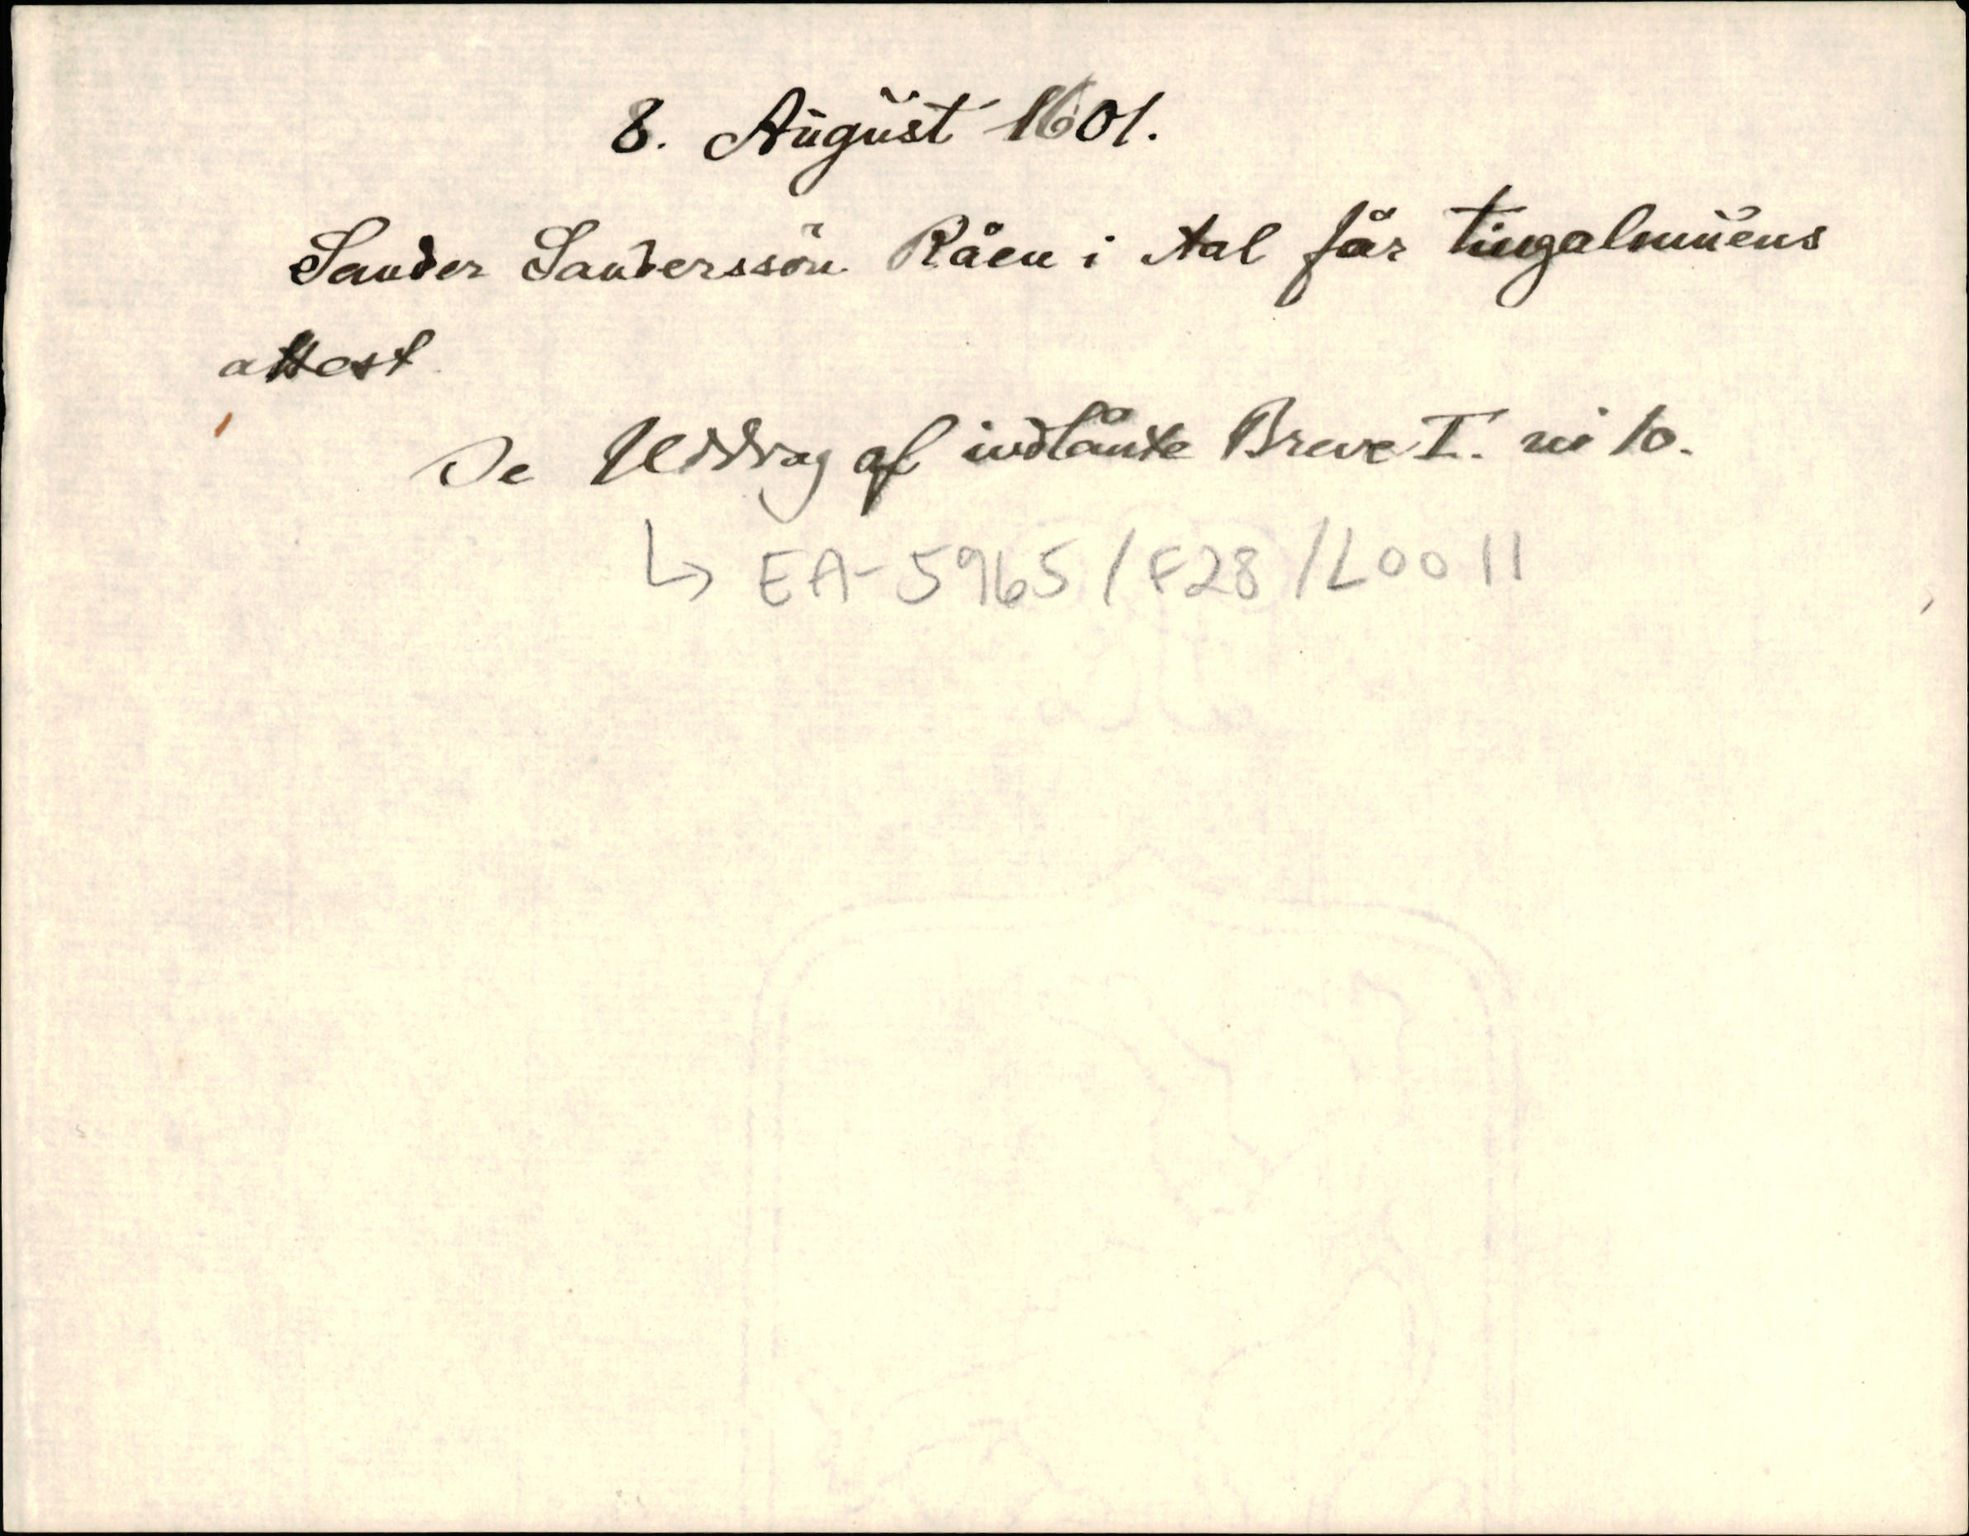 8. August 1601.
Sander Sanderssön Råen i Aal får tingalmuens
attest
Se Uddrag af indlånte Breve I. nr 10.
↳ EA-5965/F28/L0011